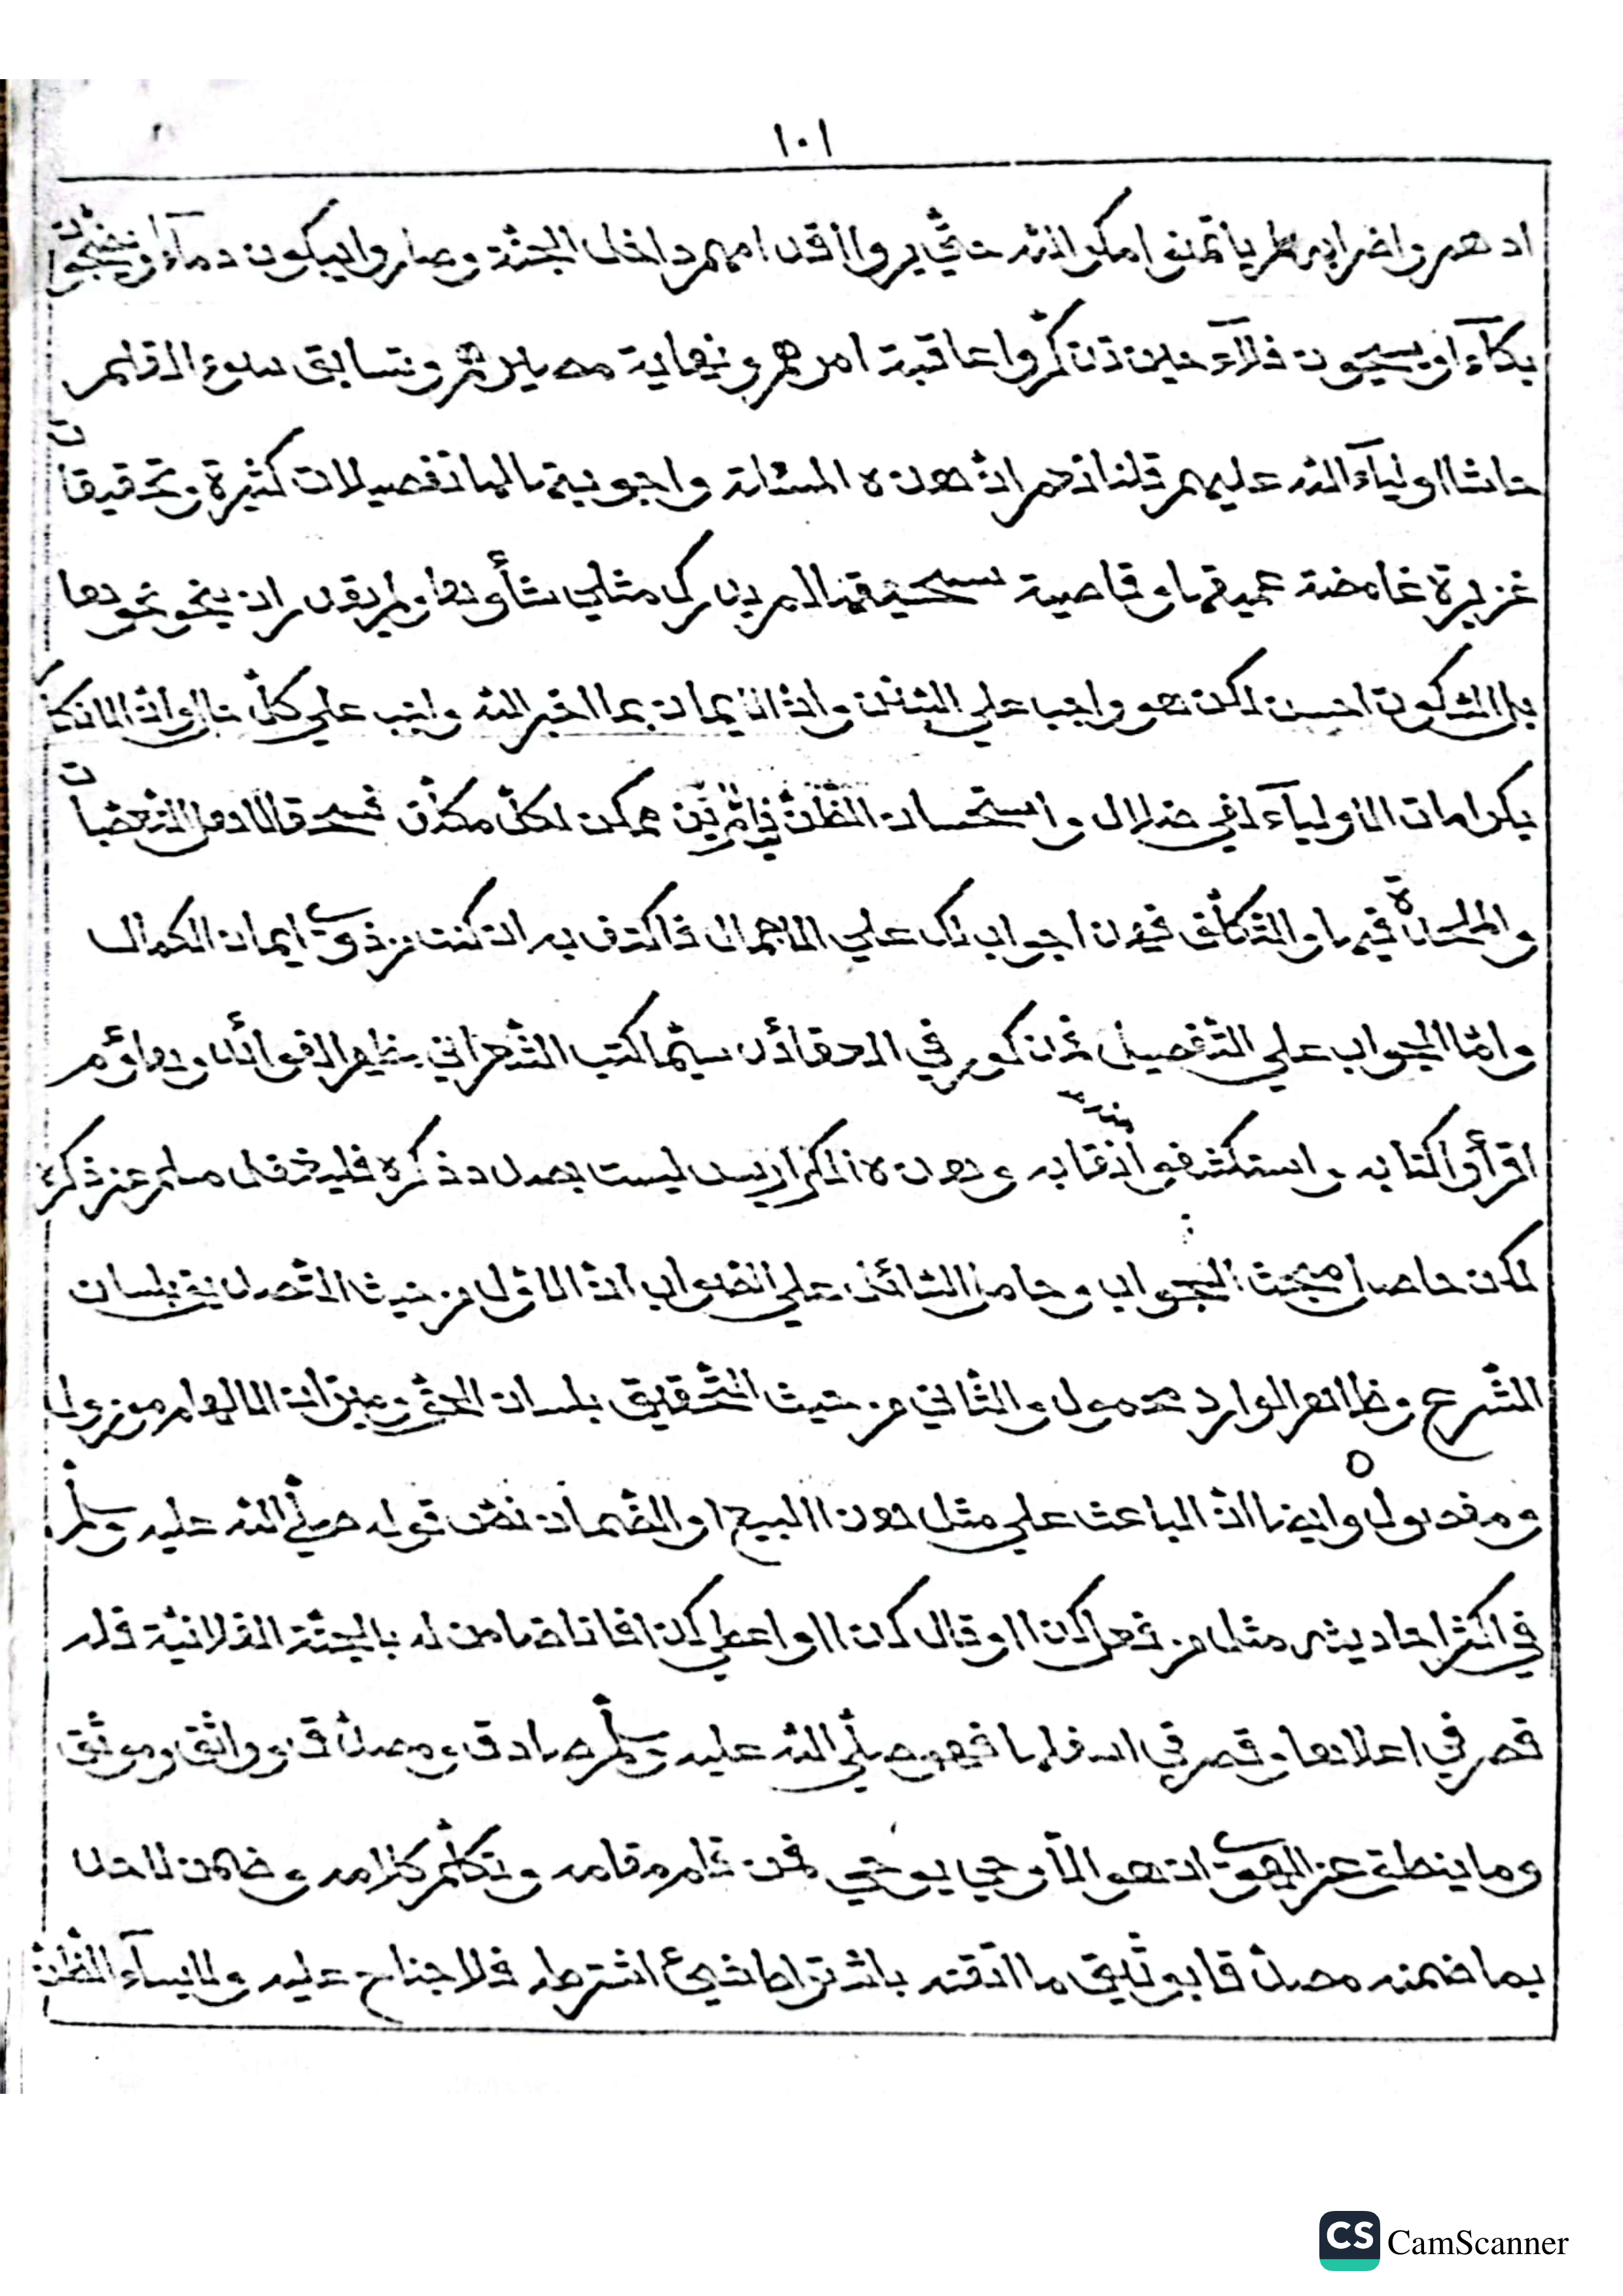 ١٠١
ادهم واضرابهم لم يأمنوا مكر الله حتّي يروا أقدامهم داخل الجنّة وصاروا يبكون دمآء ويضجّون
بكآء او يسيحون فلاء حين تذكّروا عاقبة امرهم ونهاية مصيرهم وتسابق سوء القلم
حاشا اولياء الله عليهم قلنا نعم انّ هذه المسئلة واجوبتها لها تفصيلات كثيرة وتحقيقات
غزيرة غامضة عميقها وقاصية سحيقها لم يدرك مثلي شأوها ولم يقدر ان ينحو نحوها
بل السّكوت احسن لكن هو واجب علي وانّ الايمان بما اخبر الله واجب علي كلّ حال وانّ الانكار
بكرامات الأوليآء لفي ضلال واستحسان الظّنّ ممكن لكلّ مكلّف فسحقا لاهل التّعصّبات
والملحدة فيها والتّكلّف فهذا جوابك علي الاجمال فاكتف به ان كنت من ذوي ايمان الكمال
وامّا الجواب علي التّفصيل فمذكور في العقائد سيّما كتب الشّعراني عظيم الفوائد وهاؤم
اقرأوا كتابه واستكشفوا نقابه وهذه الكراريس ليست بصدد ذكره فليغفل مسلم عن ذكره
لكن حاصل مبحث الجواب وحامل السّائل علي الصّواب انّ الاوّل من حيث التّصديق بلسان
الشّرع وظاهر الوارد محمول والثّاني من حيث التّحقيق بلسان الحقّ وميزان الالهام موزول
ومقبول وايضا انّ الباعث علي مثل هذا البيع او الضّمان نصّ قوله صلّي الله عليه وسلّم
في اكثر احاديثه مثل من فعل كذا او قال كذا او اعطي كذا فانا ضامن له بالجنّة الفلانيّة فله
قصر في اعلاها وقصر في اسفلها فهو صلّي الله عليه وسلّم صادق ومصدّق وواثق وموثّق
وما ينطق عن الهوي ان هو الّا وحي يوحي فمن قام مقامه وتكلّم كلامه وضمن لاحد
بما ضمنه مصدّقا بوثيق ما اتّقنه باشتراط شيئ اشترطه فلا جناح عليه ولا يساء الظّنّ
CS CamScanner